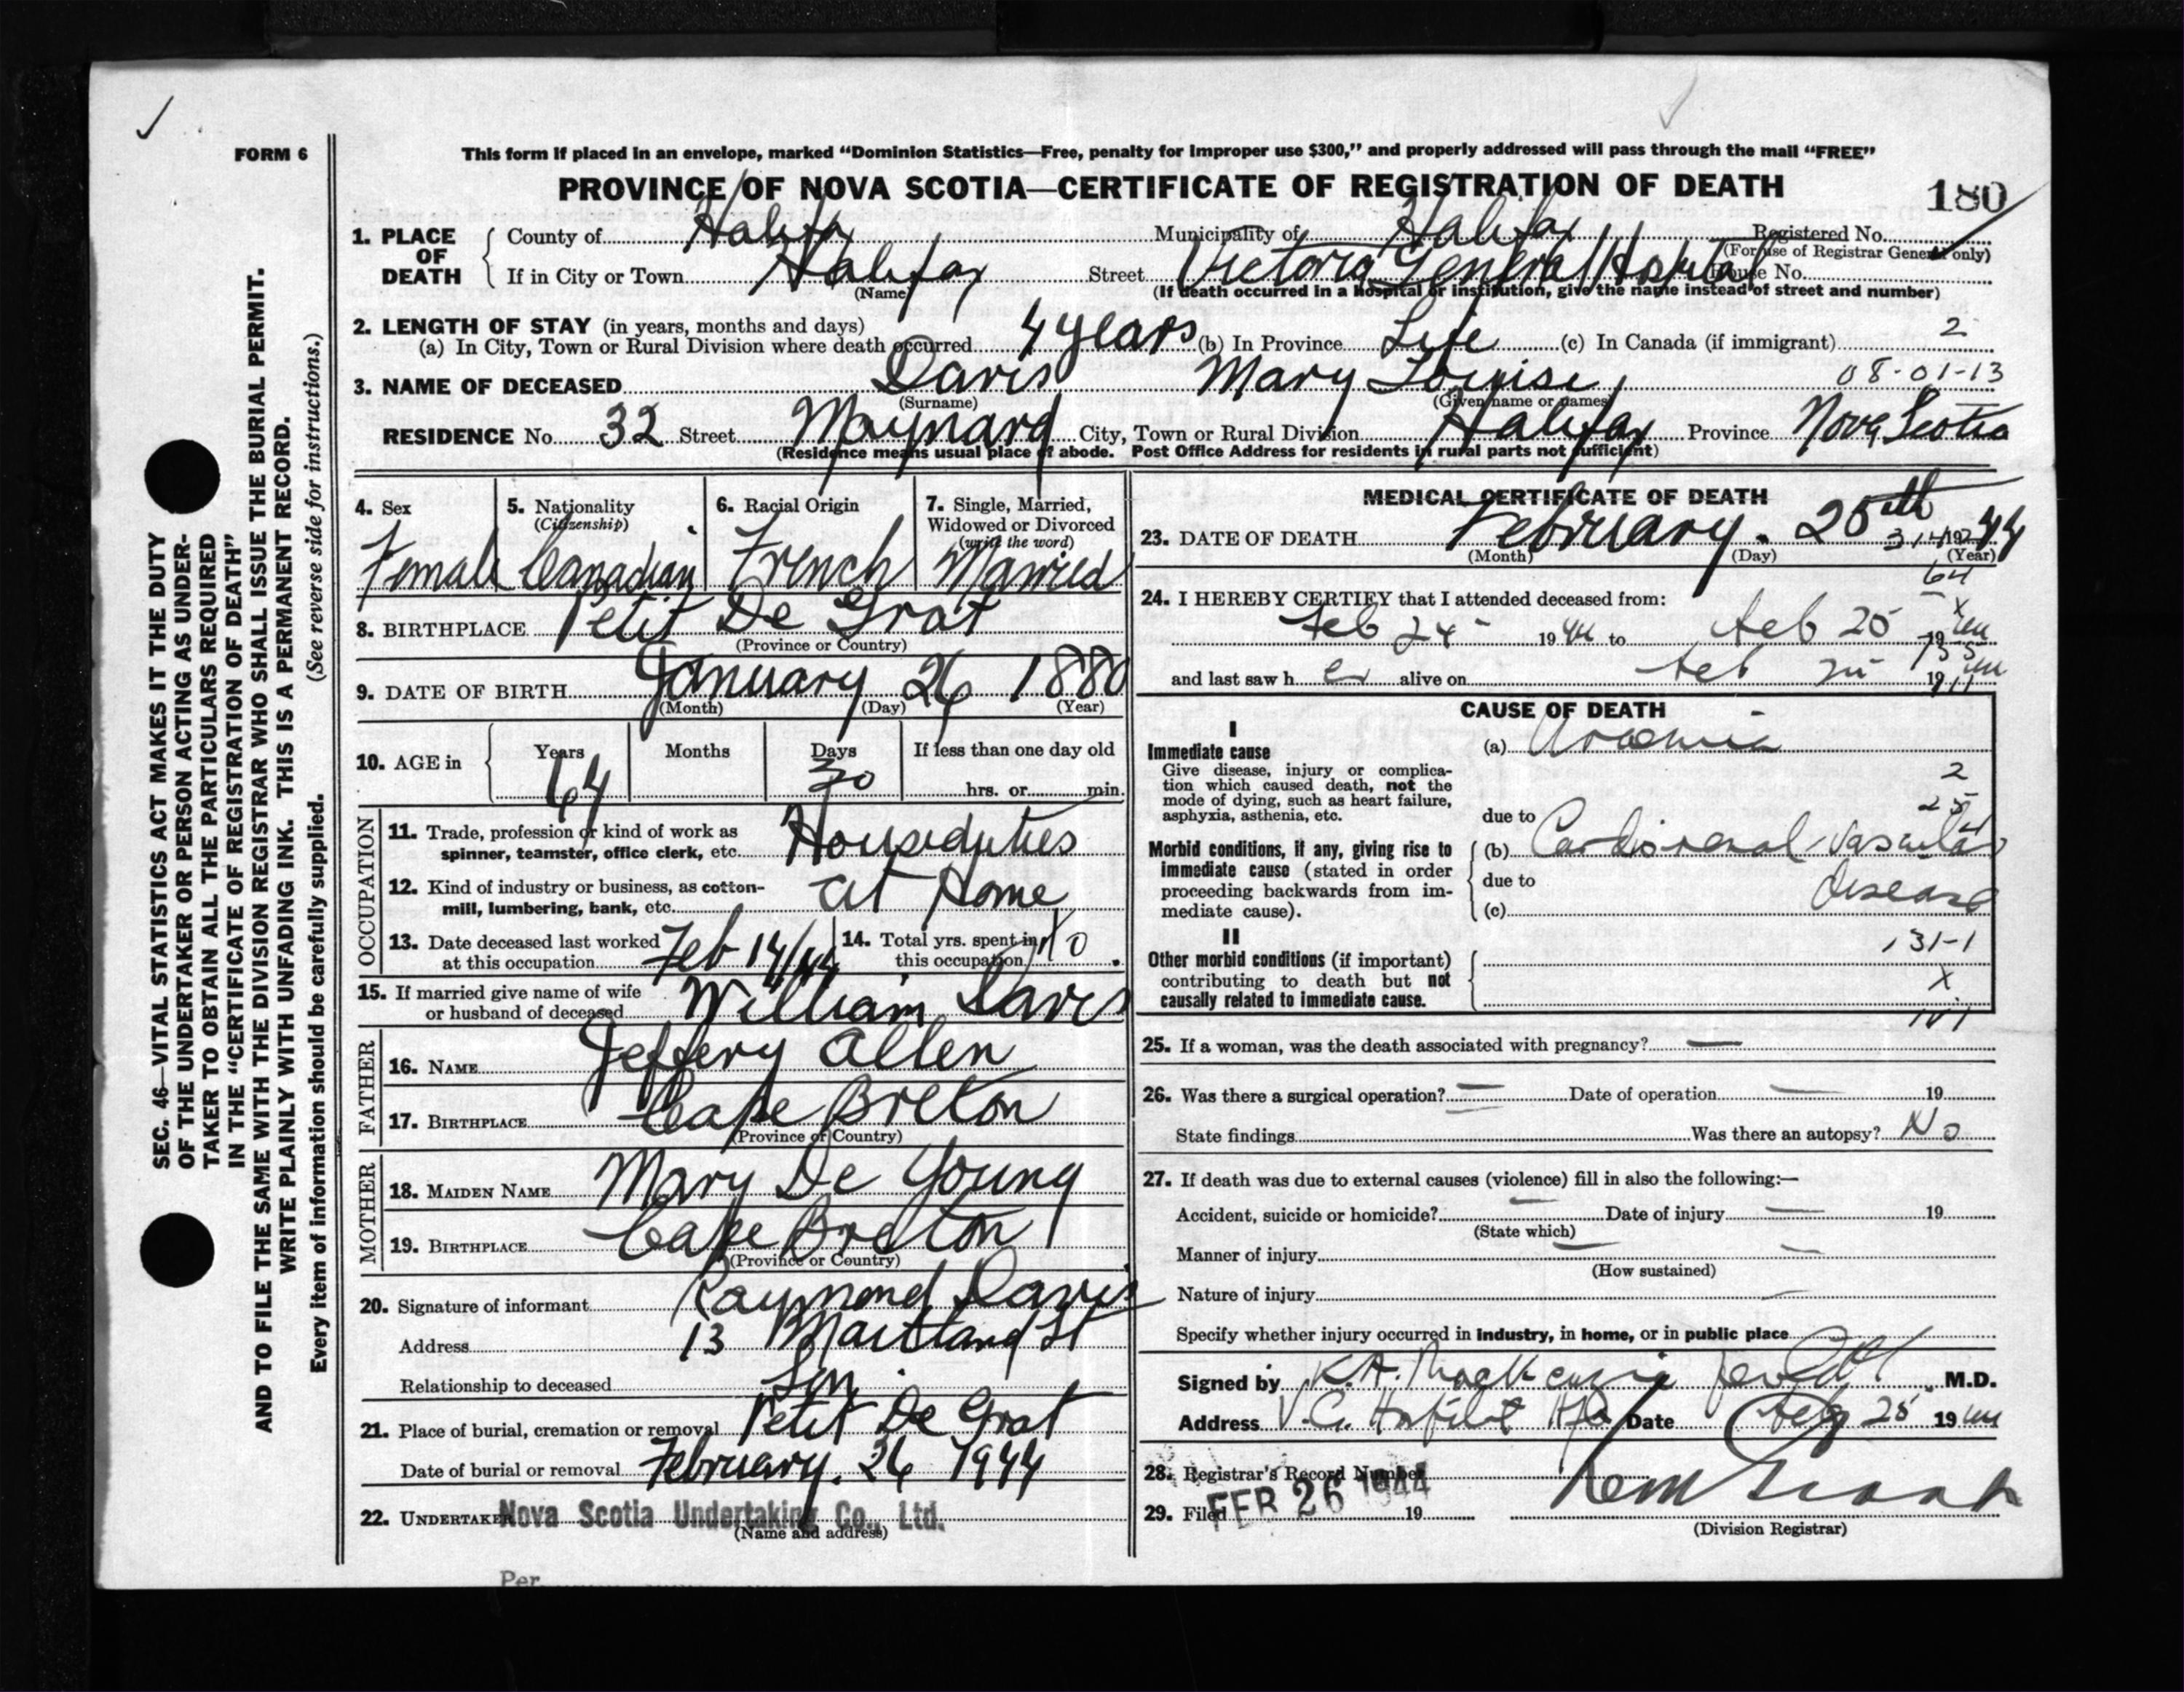 FORM 6
This form if placed in an envelope, marked “Dominion Statistics—Free, penalty for improper use $300,” and properly addressed will pass through the mail “FREE”
PROVINCE OF NOVA SCOTIA—CERTIFICATE OF REGISTRATION OF DEATH
180
1. PLACE OF DEATH { County of Halifax Municipality of Halifax Registered No.
(For use of Registrar General only)
If in City or Town Halifax Street Victoria General Hospital House No.
(Name) (If death occurred in a hospital or institution, give the name instead of street and number)
2. LENGTH OF STAY (in years, months and days)
(a) In City, Town or Rural Division where death occurred 4 years (b) In Province Life (c) In Canada (if immigrant) 2
3. NAME OF DECEASED Davis Mary Louise 08-01-13
(Surname) (Given name or names)
RESIDENCE No. 32 Street Maynard City, Town or Rural Division Halifax Province Nova Scotia
(Residence means usual place of abode. Post Office Address for residents in rural parts not sufficient)
4. Sex Female
5. Nationality (Citizenship) Canadian
6. Racial Origin French
7. Single, Married, Widowed or Divorced (write the word) Married
8. BIRTHPLACE Petit De Grat
(Province or Country)
9. DATE OF BIRTH January 26 1880
(Month) (Day) (Year)
10. AGE in { Years 64 Months Days 30 If less than one day old
hrs. or min.
OCCUPATION
11. Trade, profession or kind of work as
spinner, teamster, office clerk, etc. Houseduties
12. Kind of industry or business, as cotton-
mill, lumbering, bank, etc. at Home
13. Date deceased last worked
at this occupation Feb 14/44
14. Total yrs. spent in
this occupation
15. If married give name of wife
or husband of deceased William Davis
FATHER
16. NAME Jeffery Allen
17. BIRTHPLACE Cape Breton
(Province or Country)
MOTHER
18. MAIDEN NAME Mary De Young
19. BIRTHPLACE Cape Breton
(Province or Country)
20. Signature of informant Raymond Davis
Address 13 Maitland St
Relationship to deceased Son
21. Place of burial, cremation or removal Petit De Grat
Date of burial or removal February. 26 1944
22. UNDERTAKER Nova Scotia Undertaking Co., Ltd.
(Name and address)
Per
MEDICAL CERTIFICATE OF DEATH
23. DATE OF DEATH February. 25th 1944
(Month) (Day) (Year)
64
24. I HEREBY CERTIFY that I attended deceased from:
Feb 24 1944 to Feb 25 1944
and last saw h er alive on Feb 25 1944
CAUSE OF DEATH
I
Immediate cause (a) Uraemia
Give disease, injury or complica-
tion which caused death, not the
mode of dying, such as heart failure,
asphyxia, asthenia, etc.
2
due to
Morbid conditions, if any, giving rise to
immediate cause (stated in order
proceeding backwards from im-
mediate cause).
(b) Cardio renal-vascular
due to disease
(c)
II
131-1
Other morbid conditions (if important)
contributing to death but not
causally related to immediate cause.
X
25. If a woman, was the death associated with pregnancy? —
26. Was there a surgical operation? — Date of operation — 19
State findings Was there an autopsy? No
27. If death was due to external causes (violence) fill in also the following:—
Accident, suicide or homicide? — Date of injury — 19
(State which)
Manner of injury —
(How sustained)
Nature of injury —
Specify whether injury occurred in industry, in home, or in public place
Signed by K.A. MacKenzie M.D.
Address V.G. Hospital Hfx Date Feb 25 1944
28. Registrar's Record Number
29. Filed FEB 26 1944 19
(Division Registrar)
SEC. 46—VITAL STATISTICS ACT MAKES IT THE DUTY
OF THE UNDERTAKER OR PERSON ACTING AS UNDER-
TAKER TO OBTAIN ALL THE PARTICULARS REQUIRED
IN THE “CERTIFICATE OF REGISTRATION OF DEATH”
AND TO FILE THE SAME WITH THE DIVISION REGISTRAR WHO SHALL ISSUE THE BURIAL PERMIT.
WRITE PLAINLY WITH UNFADING INK. THIS IS A PERMANENT RECORD.
Every item of information should be carefully supplied. (See reverse side for instructions.)